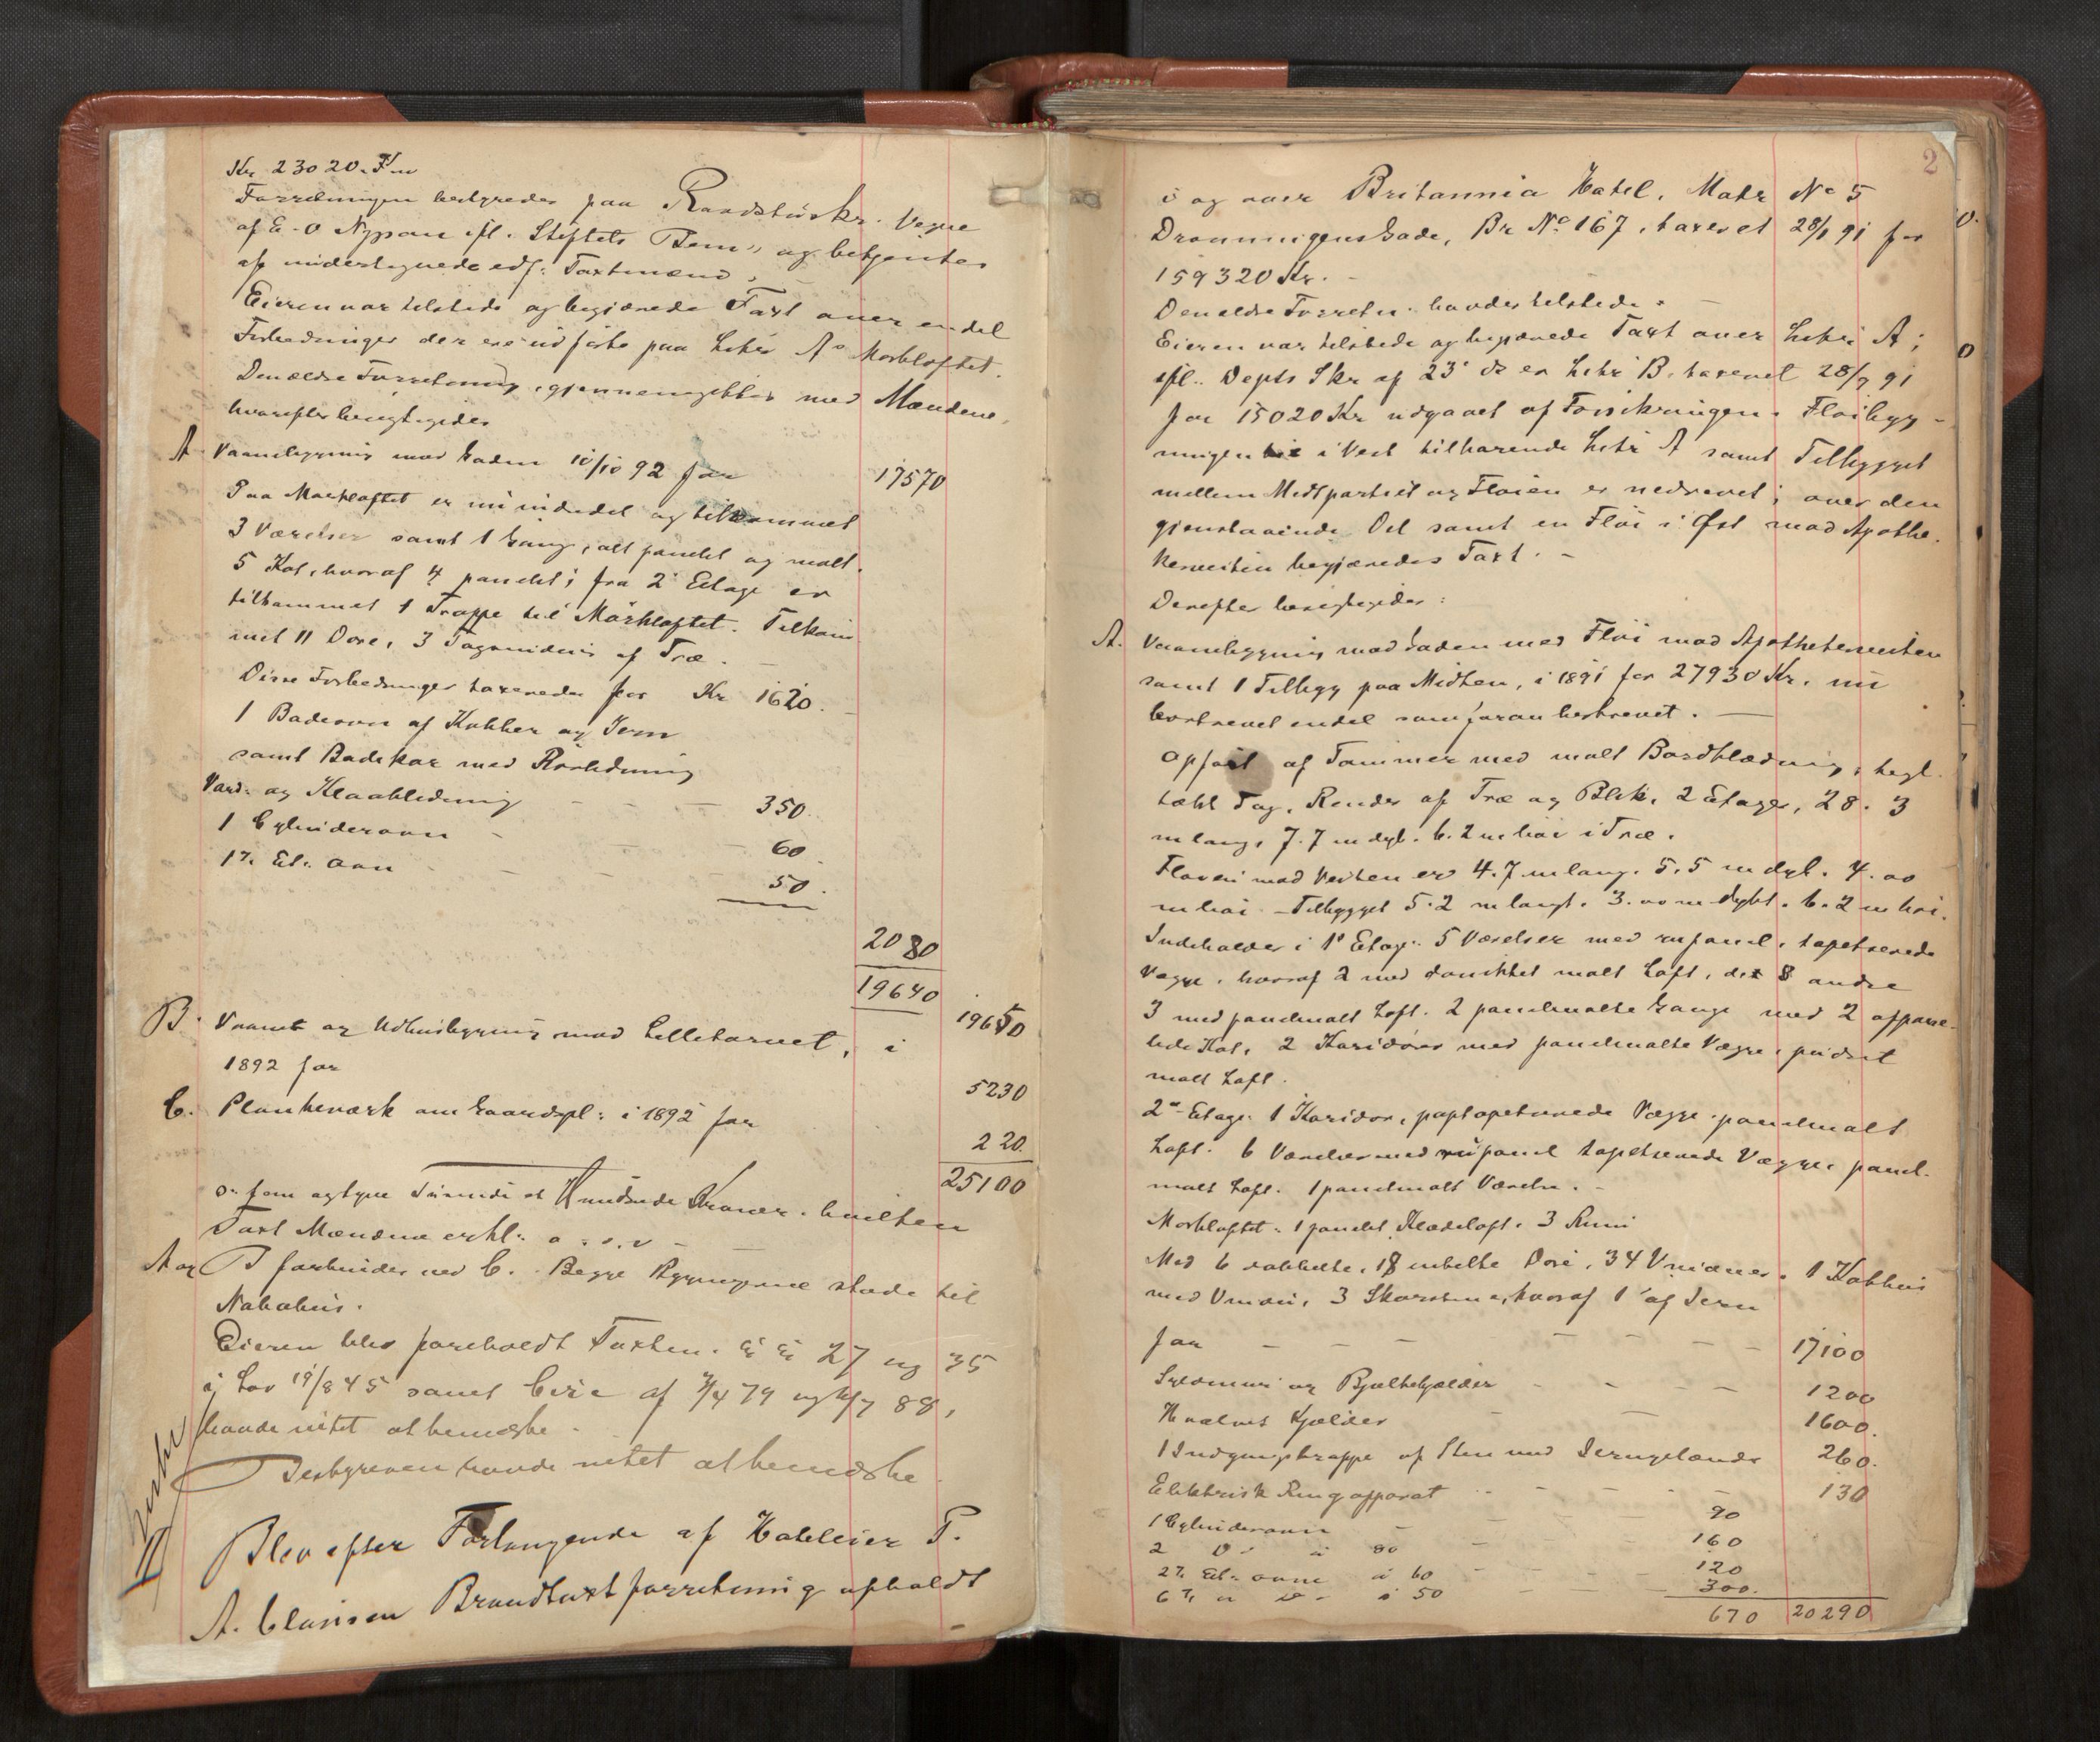 Kr. 23020.
Forretningen bestyredes paa Raadstuskr. Vegne
af E. O Nypan ifl. Stiftets Bem. og betjentes
af undertegnede edf: Taxtmænd.
Eieren var tilstede og begjærede Taxt over endel
Forbedringer der ere udførte paa Litr A's Mørkloftet.
Den ældre Forretning gjennemgikkes med Mændene,
hvorefter besigtigedes
A. Vaaningsbygning mod Gaden 10/10 92 for 17570
Paa Mørkloftet er nu inddelt og tilkommet
3 Værelser samt 1 Gang, alt panelet og malt.
5 Kot, hvoraf 4 panelt; fra 2' Etage er
tilkommet 1 Trappe til Mørkloftet. Tilkom
met 11 Døre, 3 Fagvinduer af Træ. —
Disse Forbedringer taxeredes for Kr 1620. —
1 Badeovn af Kobber og Jern
samt Badekar med Rørledning
Vand- og Kloakledning — — — 350.
1 Cylinderovn — — — 60.
1 7. Et: Ovn — — — 50.
2080
19640
B. Vaanings og Udhusbygning mod Lilletorvet, i 19650
1892 for
5230
C. Plankeværk om Gaardspl: i 1892 for
220.
25100
o: fem og tyve Tusinde et Hundrede Kroner. hvilken
Taxt Mændene erkl: o. s. v —
A og B forbindes ved C. Begge Bygningerne støde til
Nabohus.
Eieren blev foreholdt Taxten. §§ 27 og 35
i Lov 19/8 45 samt Circ af 7/4 79 og 88,
havde intet at bemærke.
Bestyreren havde intet at bemærke
II
Blev efter Forlangende af Hoteleier P.
A. Clausen Brandtaxtforretning afholdt
2
i og over Britannia Hotel, Matr No 5
Dronningensgade, Br No 167, taxeret 28/7 91 for
159320 Kr. —
Den ældre Forretn. havdes tilstede. —
Eieren var tilstede og begjærede Taxt over Litr A;
ifl. Depts Skr af 23' ds er Litr B. taxeret 28/7 91
for 15020 Kr udgaaet af Forsikringen. Fløibyg-
ningen i Vest tilhørende Litr A samt Tilbygget
mellem Midtpartiet og Fløien er nedrevet; over den
gjenstaaende Del samt en Fløi i Øst mod Apothe-
kerveiten begjæredes Taxt. —
Derefter besigtigedes:
A. Vaaningsbygning mod Gaden med Fløi mod Apothekerveiten
samt 1 Tilbygg paa Midten, i 1891 for 27930 Kr. nu
bortrevet endel som foran beskrevet. —
Opført af Tømmer med malt Bordklædning, tegl-
tækt Tag, Render af Træ og Blik, 2 Etager, 28. 3
m lang, 7.7 m dyb. 6.2 m høi i Træ.
Fløien mod Veiten er 4.7 m lang. 5.5 m dyb. 4.00
m høi — Tilbygget 5.2 m langt. 3.00 m dybt. 6.2 m høi.
Indeholder i 1' Etage: 5 Værelser med rupanel, tapetserede
Vægge, hvoraf 2 med donikket malt Loft, de andre
3 med panelmalt Loft. 2 panelmalte Gange med 2 afpane-
lede Kot, 2 Koridorer med panelmalte Vægge, pudset
malt Loft.
2' Etage: 1 Koridor, paptapetserede Vægge panelmalt
Loft. 6 Værelser med rupanel tapetserede Vægge, panel-
malt Loft. 1 panelmalt Værelse. —
Mørkloftet: 1 panelt Klædeloft. 3 Rum
Med 6 dobbelte, 18 enkelte Døre, 34 Vinduer. 1 Kobhus
med Vinduer, 3 Skorstene, hvoraf 1 af Jern
for — — — — — — 17100
Syldmur og Bjælkekjælder — — — — 1200
Hvælvet Kjælder — — 1600.
1 Indgangstrappe af Sten med Jerngelænder 260.
Elektrisk Ringapparat — — — — 130
1 Cylinderovn — — — 90
2 D° à 80 — — — 160
2 7. Et: ovne à 60 — — — 120
6 7. " D° à 50 — — — 300.
670 20290